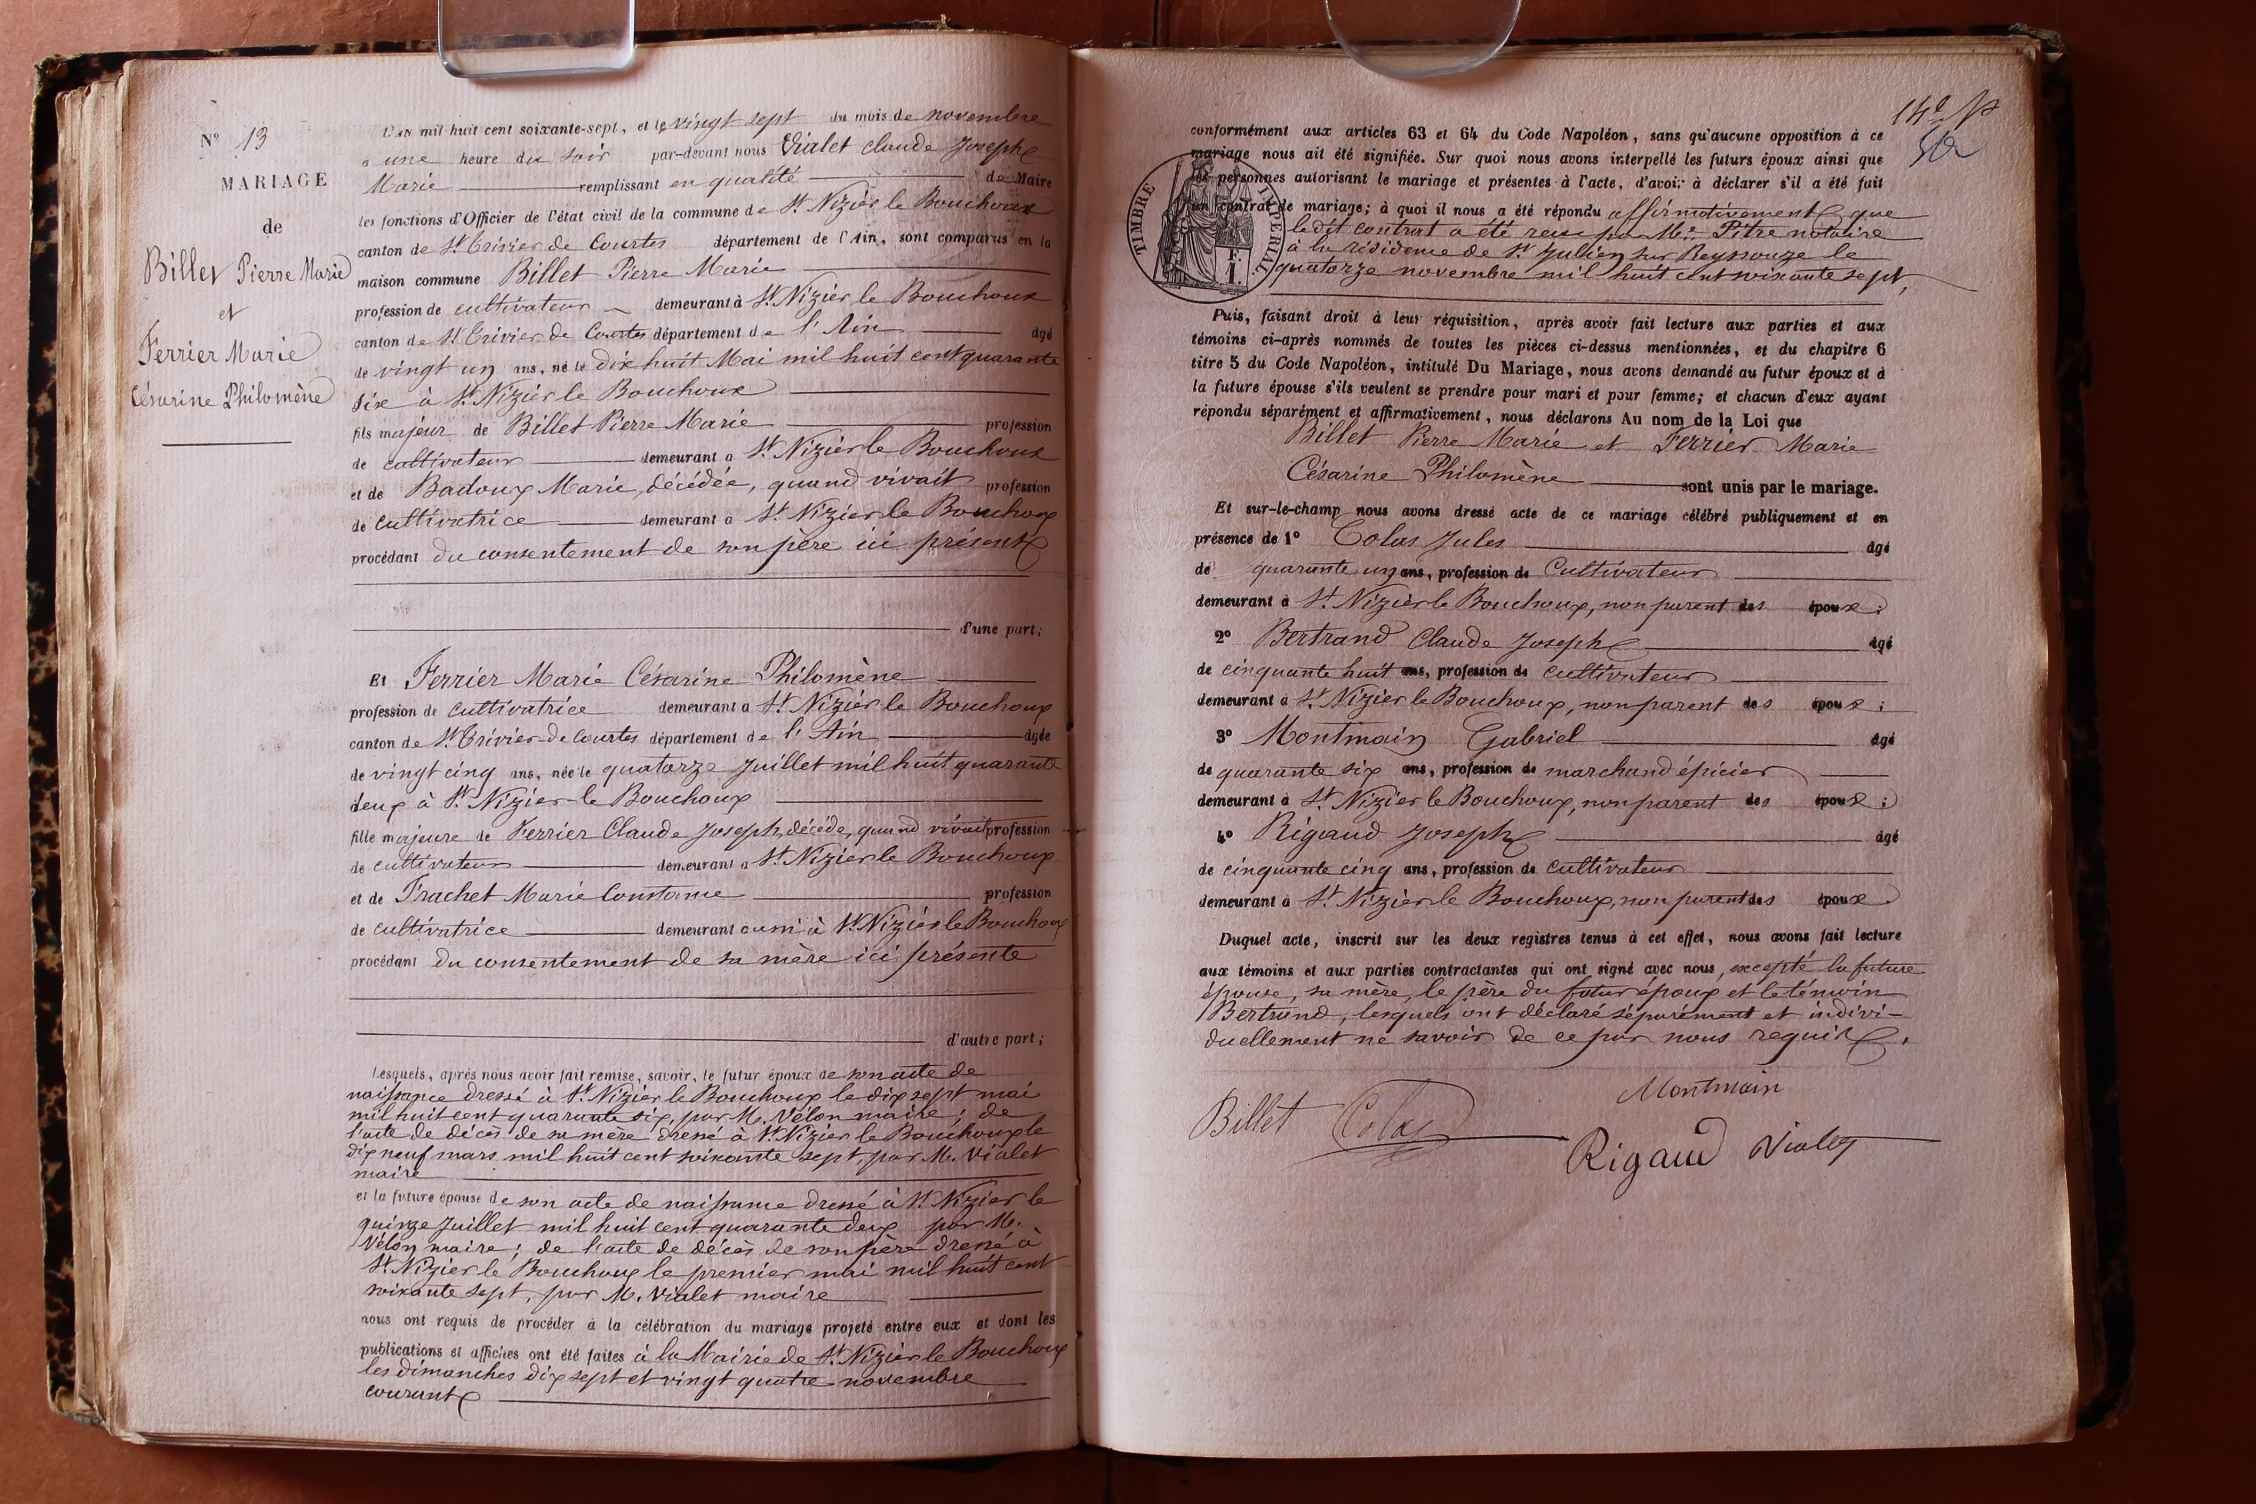 N° 13
MARIAGE
de
Billet Pierre Marie
et
Ferrier Marie
Césarine Philomène
L'AN mil huit cent soixante-sept, et le vingt sept du mois de novembre
a une heure du soir par-devant nous Vialet Claude Joseph
Marie remplissant en qualité de Maire
les fonctions d'Officier de l'état civil de la commune de St Nizier le Bouchoux
canton de St Trivier de Courtes département de l'Ain, sont comparus en la
maison commune Billet Pierre Marie
profession de cultivateur demeurant à St Nizier le Bouchoux
canton de St Trivier de Courtes département de l'Ain âgé
de vingt un ans, né le dix huit Mai mil huit cent quarante
six à St Nizier le Bouchoux
fils majeur de Billet Pierre Marie profession
de cultivateur demeurant a St Nizier le Bouchoux
et de Badoux Marie, décédée, quand vivait profession
de cultivatrice demeurant a St Nizier le Bouchoux
procédant du consentement de son père ici présent
d'une part;
Et Ferrier Marie Césarine Philomène
profession de cultivatrice demeurant a St Nizier le Bouchoux
canton de St Trivier de Courtes département de l'Ain âgée
de vingt cinq ans, née le quatorze Juillet mil huit quarante
deux à St Nizier le Bouchoux
fille majeure de Ferrier Claude Joseph, décédé, quand vivait profession
de cultivateur demeurant a St Nizier le Bouchoux
et de Trachet Marie Constance profession
de cultivatrice demeurant aussi à St Nizier le Bouchoux
procédant du consentement de sa mère ici présente
d'autre part;
Lesquels, après nous avoir fait remise, savoir, le futur époux de son acte de
naissance dressé à St Nizier le Bouchoux le dix sept mai
mil huit cent quarante six, par M. Vélon maire; de
l'acte de décès de sa mère dressé à St Nizier le Bouchoux le
dix neuf mars mil huit cent soixante sept, par M. Vialet
maire
et la future épouse de son acte de naissance dressé à St Nizier le
quinze Juillet mil huit cent quarante deux par M.
Vélon maire; de l'acte de décès de son père dressé à
St Nizier le Bouchoux le premier mai mil huit cent
soixante sept, par M. Vialet maire
nous ont requis de procéder à la célébration du mariage projeté entre eux et dont les
publications et affiches ont été faites à la Mairie de St Nizier le Bouchoux
les dimanches dix sept et vingt quatre novembre
courant
conformément aux articles 63 et 64 du Code Napoléon, sans qu'aucune opposition à ce
mariage nous ait été signifiée. Sur quoi nous avons interpellé les futurs époux ainsi que
les personnes autorisant le mariage et présentes à l'acte, d'avoir à déclarer s'il a été fait
un contrat de mariage; à quoi il nous a été répondu affirmativement que
le dit contrat a été reçu par Me Pitre notaire
à la résidence de St Julien sur Reyssouze le
quatorze novembre mil huit cent soixante sept,
TIMBRE IMPERIAL
1 F.
Puis, faisant droit à leur réquisition, après avoir fait lecture aux parties et aux
témoins ci-après nommés de toutes les pièces ci-dessus mentionnées, et du chapitre 6
titre 5 du Code Napoléon, intitulé Du Mariage, nous avons demandé au futur époux et à
la future épouse s'ils veulent se prendre pour mari et pour femme; et chacun d'eux ayant
répondu séparément et affirmativement, nous déclarons Au nom de la Loi que
Billet Pierre Marie et Ferrier Marie
Césarine Philomène sont unis par le mariage.
Et sur-le-champ nous avons dressé acte de ce mariage célébré publiquement et en
présence de 1° Colas Jules âgé
de quarante un ans, profession de Cultivateur
demeurant à St Nizier le Bouchoux, non parent des époux;
2° Bertrand Claude Joseph âgé
de cinquante huit ans, profession de cultivateur
demeurant à St Nizier le Bouchoux, non parent des époux;
3° Montmain Gabriel âgé
de quarante six ans, profession de marchand épicier
demeurant à St Nizier le Bouchoux, non parent des époux;
4° Rigaud Joseph âgé
de cinquante cinq ans, profession de cultivateur
demeurant à St Nizier le Bouchoux, non parent des époux
Duquel acte, inscrit sur les deux registres tenus à cet effet, nous avons fait lecture
aux témoins et aux parties contractantes qui ont signé avec nous, excepté la future
épouse, sa mère, le père du futur époux et le témoin
Bertrand, lesquels ont déclaré séparément et indivi-
duellement ne savoir de ce par nous requis.
Montmain
Billet Colas
Rigaud Vialet